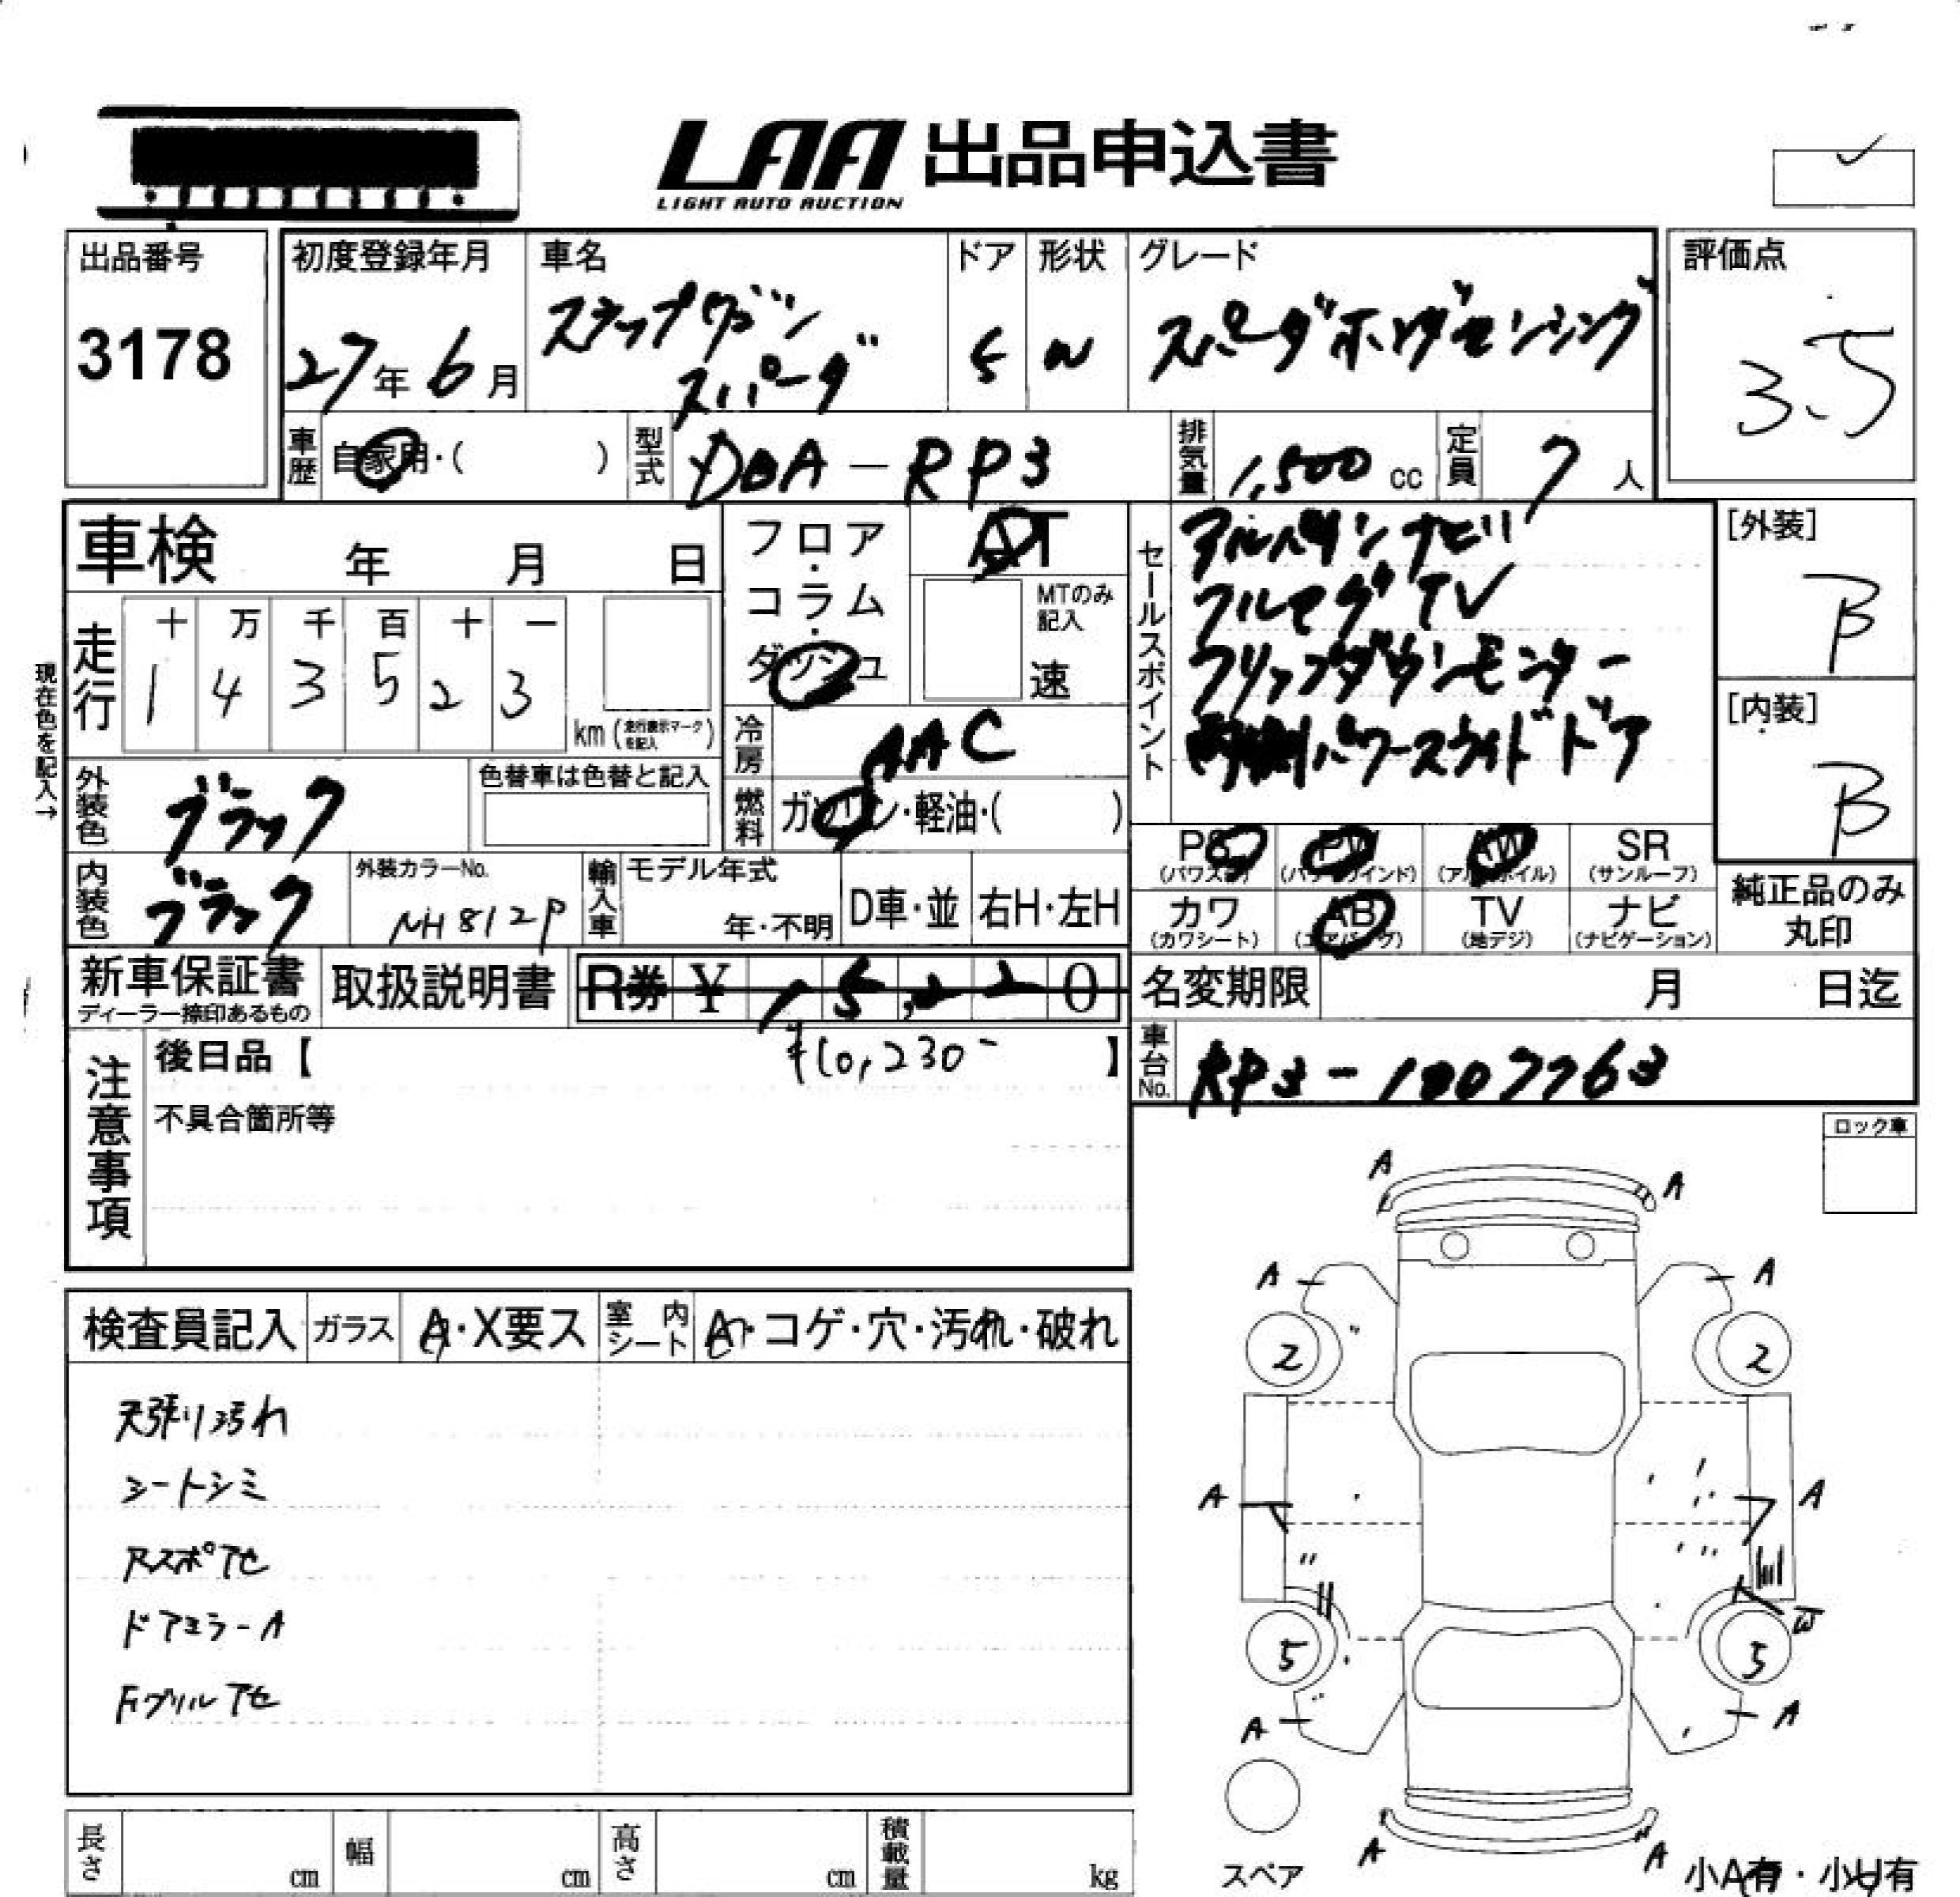 LAA 出品申込書
LIGHT AUTO AUCTION
出品番号
3178
初度登録年月
27年 6月
車名
ステップワゴン
スパーダ
ドア
5
形状
W
グレード
スパーダホンダセンシング
評価点
3.5
車歴
自家用・( )
型式
DBA-RP3
排気量
1,500 cc
定員
7 人
車検 年 月 日
フロア・コラム・ダッシュ
AT
MTのみ記入
速
セールスポイント
アルパインナビ
フルセグTV
フリップダウンモニター
両側パワースライドドア
[外装]
B
[内装]
B
現在色を記入→
走行
十 万 千 百 十 一
1 4 3 5 2 3
km (走行表示マークを記入)
冷房
AAC
燃料
ガソリン・軽油・( )
外装色
ブラック
色替車は色替と記入
内装色
ブラック
外装カラーNo.
NH812P
輸入車
モデル年式
年・不明
D車・並
右H・左H
PS (パワステ)
PW (パワーウインド)
AW (アルミホイル)
SR (サンルーフ)
カワ (カワシート)
AB (エアバッグ)
TV (地デジ)
ナビ (ナビゲーション)
純正品のみ
丸印
新車保証書
ディーラー捺印あるもの
取扱説明書
R券 ¥ 15,220
¥10,230-
名変期限 月 日迄
注意事項
後日品【 】
不具合箇所等
車台No.
RP3-1007763
ロック車
検査員記入
ガラス
A・X要ス
室内シート
A・コゲ・穴・汚れ・破れ
天張り汚れ
シートシミ
Rスポアセ
ドアミラーA
Fグリルアセ
A
A
A
A
2
2
A
A
W
5
5
A
A
A
A
スペア
小A有・小U有
長さ cm
幅 cm
高さ cm
積載量 kg